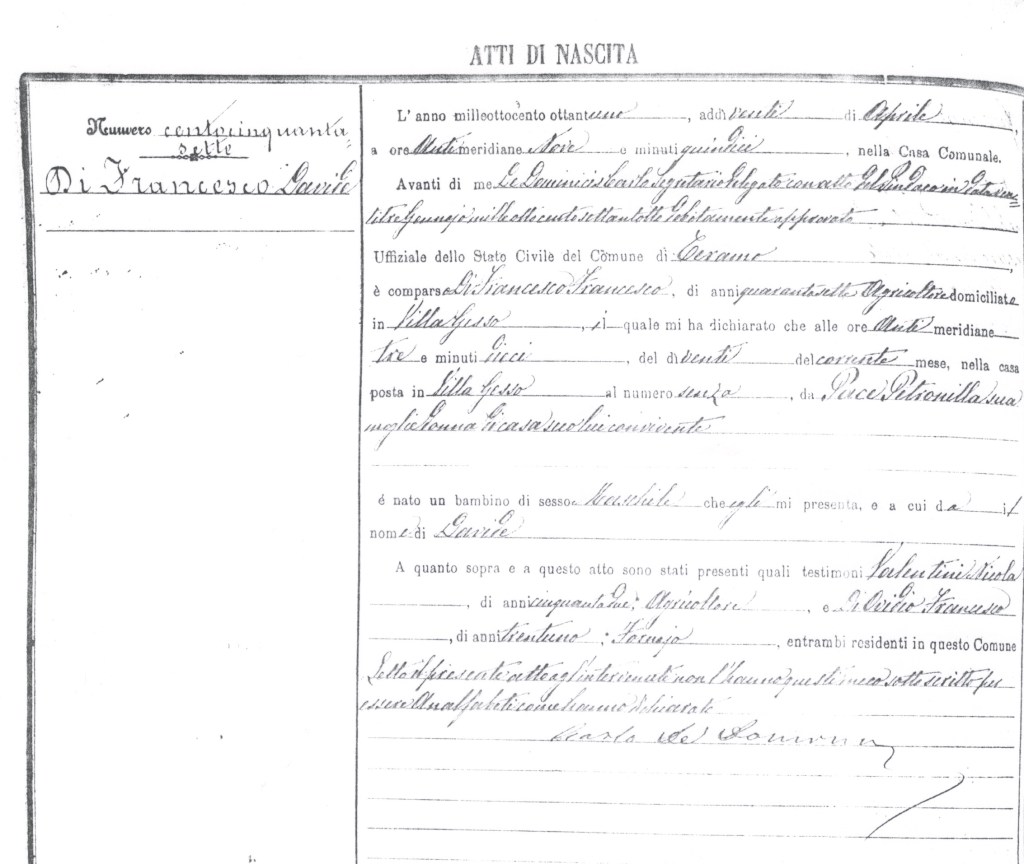 ATTI DI NASCITA
Numero centocinquanta
sette
Di Francesco Davide
L' anno milleottocento ottantuno, addì venti di Aprile,
a ore Anti meridiane Nove e minuti quindici, nella Casa Comunale.
Avanti di me De Dominicis Carlo Segretario Delegato con atto del Sindaco in data ven-
titre Giugno mille ottocento settantotto debitamente approvato
Uffiziale dello Stato Civile del Comune di Teramo,
è comparso Di Francesco Francesco, di anni quarantasette Agricoltore domiciliato
in Villa Gesso, il quale mi ha dichiarato che alle ore Anti meridiane
tre e minuti dieci, del dì venti del corrente mese, nella casa
posta in Villa Gesso al numero senza, da Pece Petronilla sua
moglie donna di casa seco lui convivente
é nato un bambino di sesso Maschile che egli mi presenta, e a cui da il
nome di Davide
A quanto sopra e a questo atto sono stati presenti quali testimoni Valentini Nicola
, di anni cinquantadue: Agricoltore, e Di Ovidio Francesco
, di anni trentuno: Fornajo, entrambi residenti in questo Comune
Letto il presente atto agl'intervenuti non l'hanno questi meco sottoscritto per
essere Analfabeti come hanno dichiarato
Carlo De Dominicis